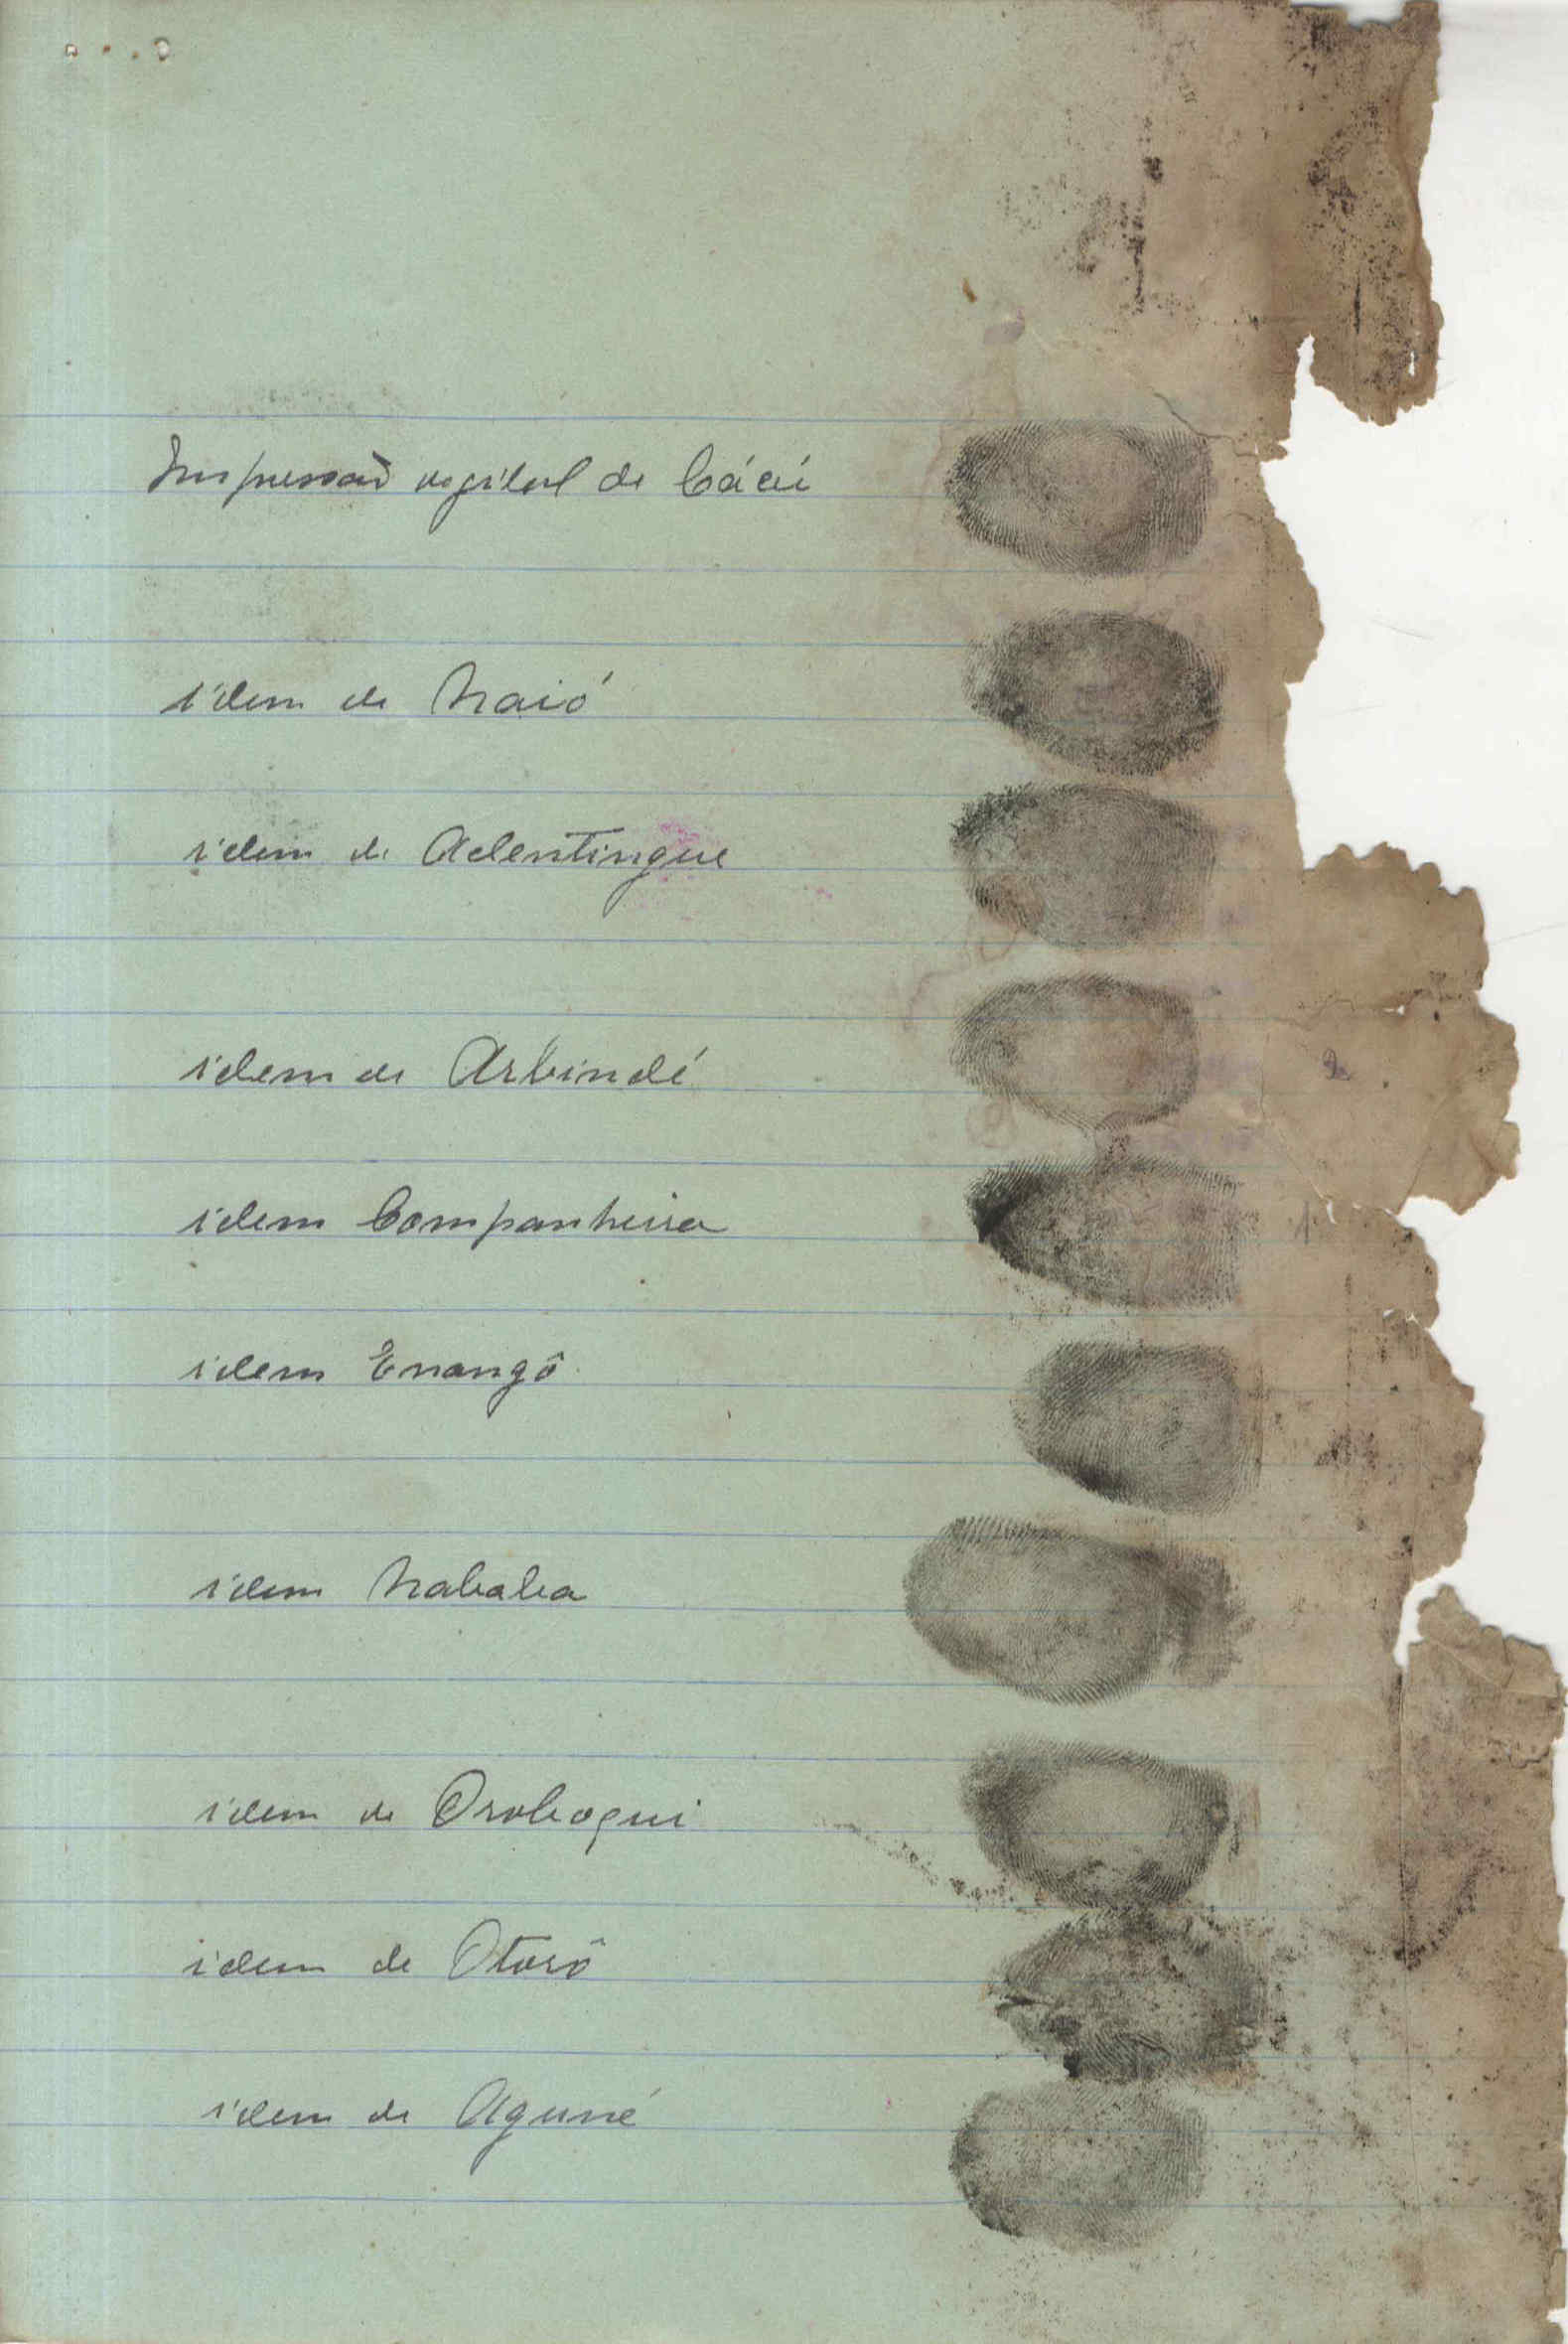 Impressão digital de Cácú
idem de Naió
idem de Adentingue
idem de Arbindé
idem Companheira
idem Enangô
idem Nababa
idem de Orobogui
idem de Otorô
idem de Aguné